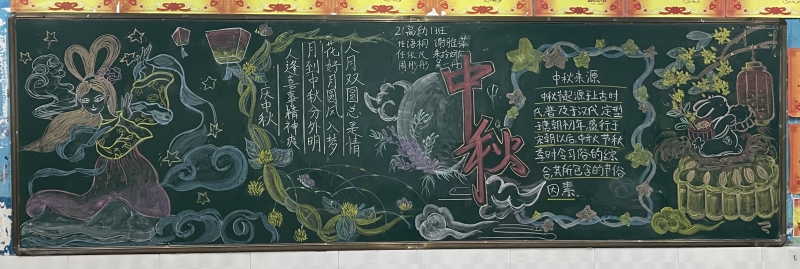 人月双圆总柔情
花好月圆风入梦
月到中秋分外明
人逢喜事精神爽
庆中秋
21高幼1班
中秋
中秋来源
中秋节起源于上古时
代,普及于汉代,定型
于唐朝初年,盛行于
宋朝以后,中秋节秋
季时令习俗的综
合,其所包含的节俗
因素.